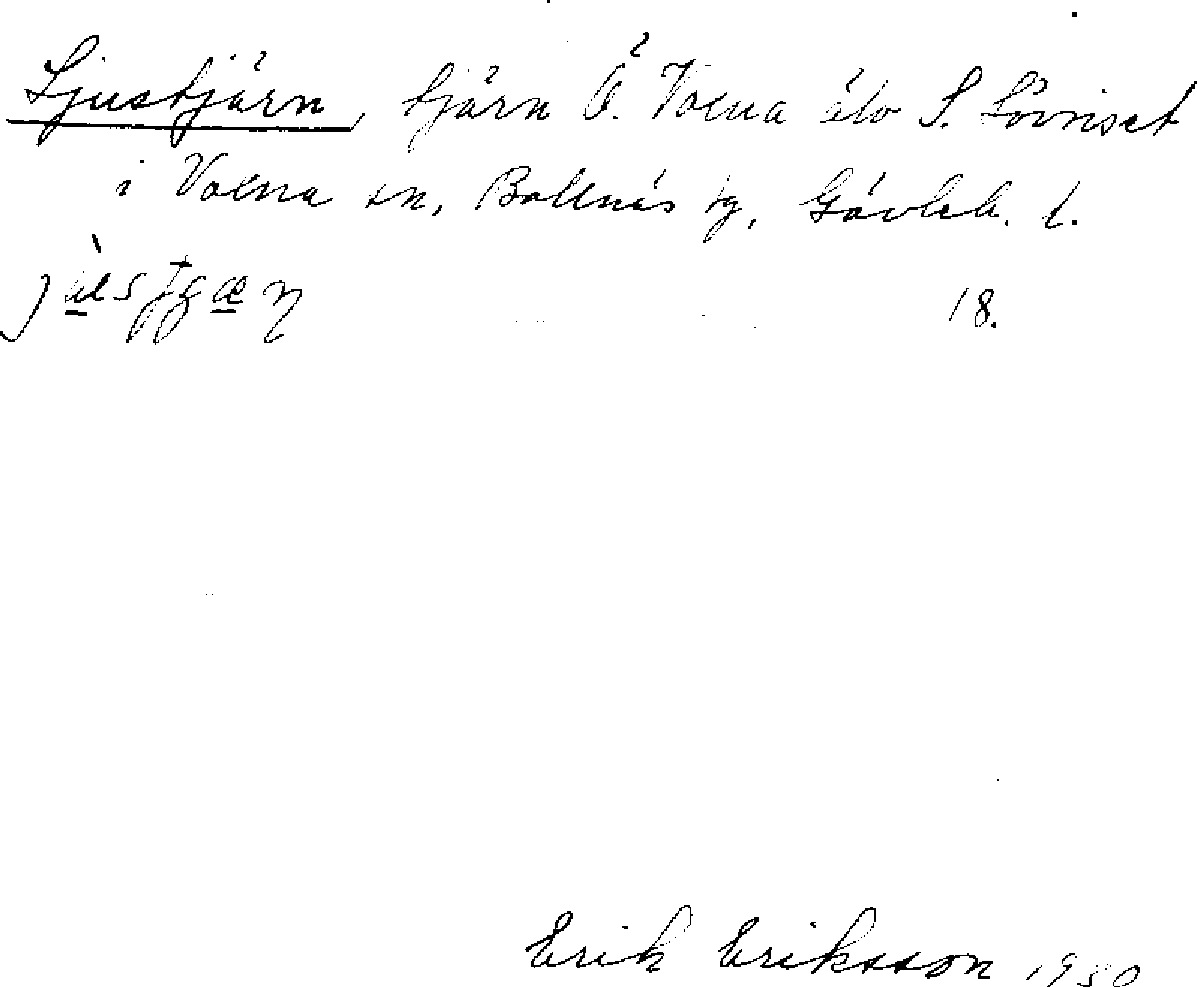 Ljustjärn, tjärn Ö. Voxna älv S. Lövriset
i Voxna sn, Bollnäs tg, Gävleb. l.
18.
Erik Eriksson 1930